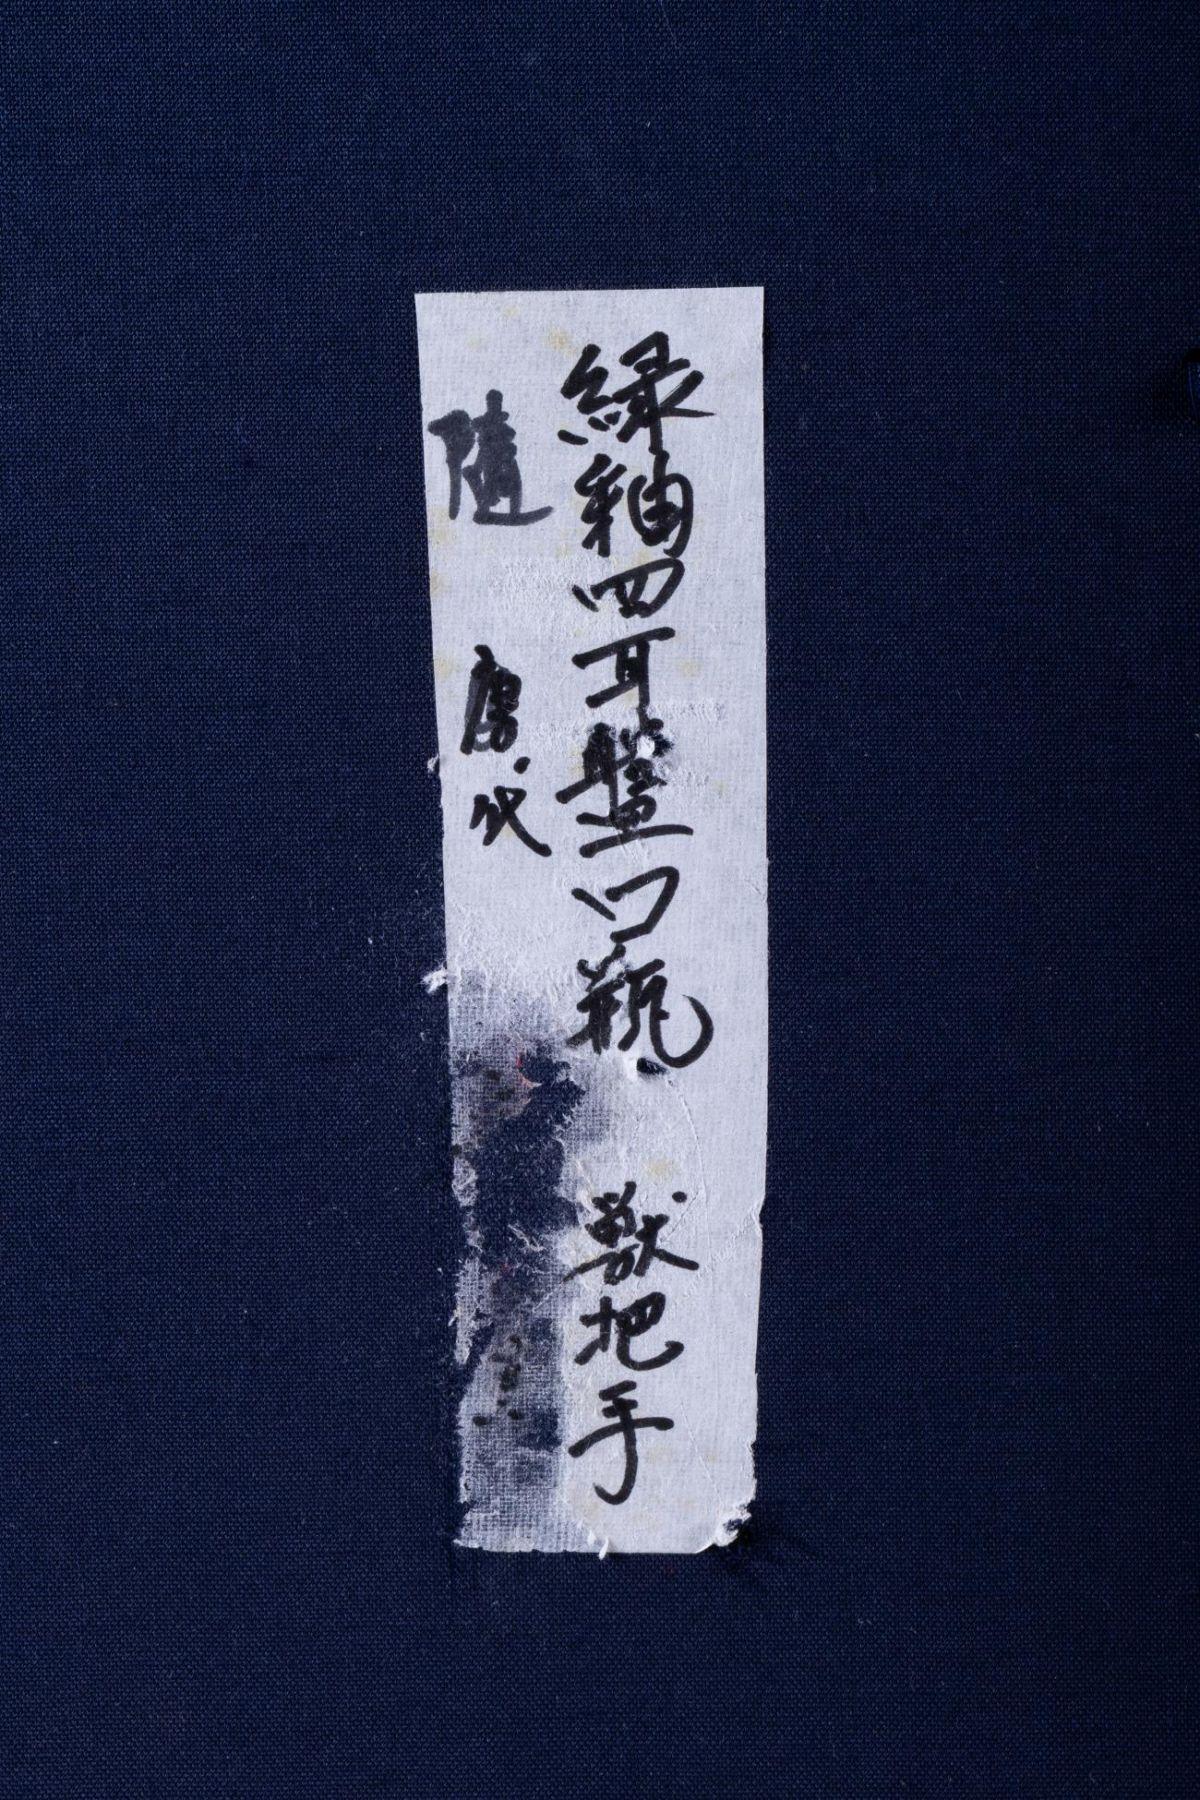 緑釉四耳盤口瓶 獣把手
隨 唐代